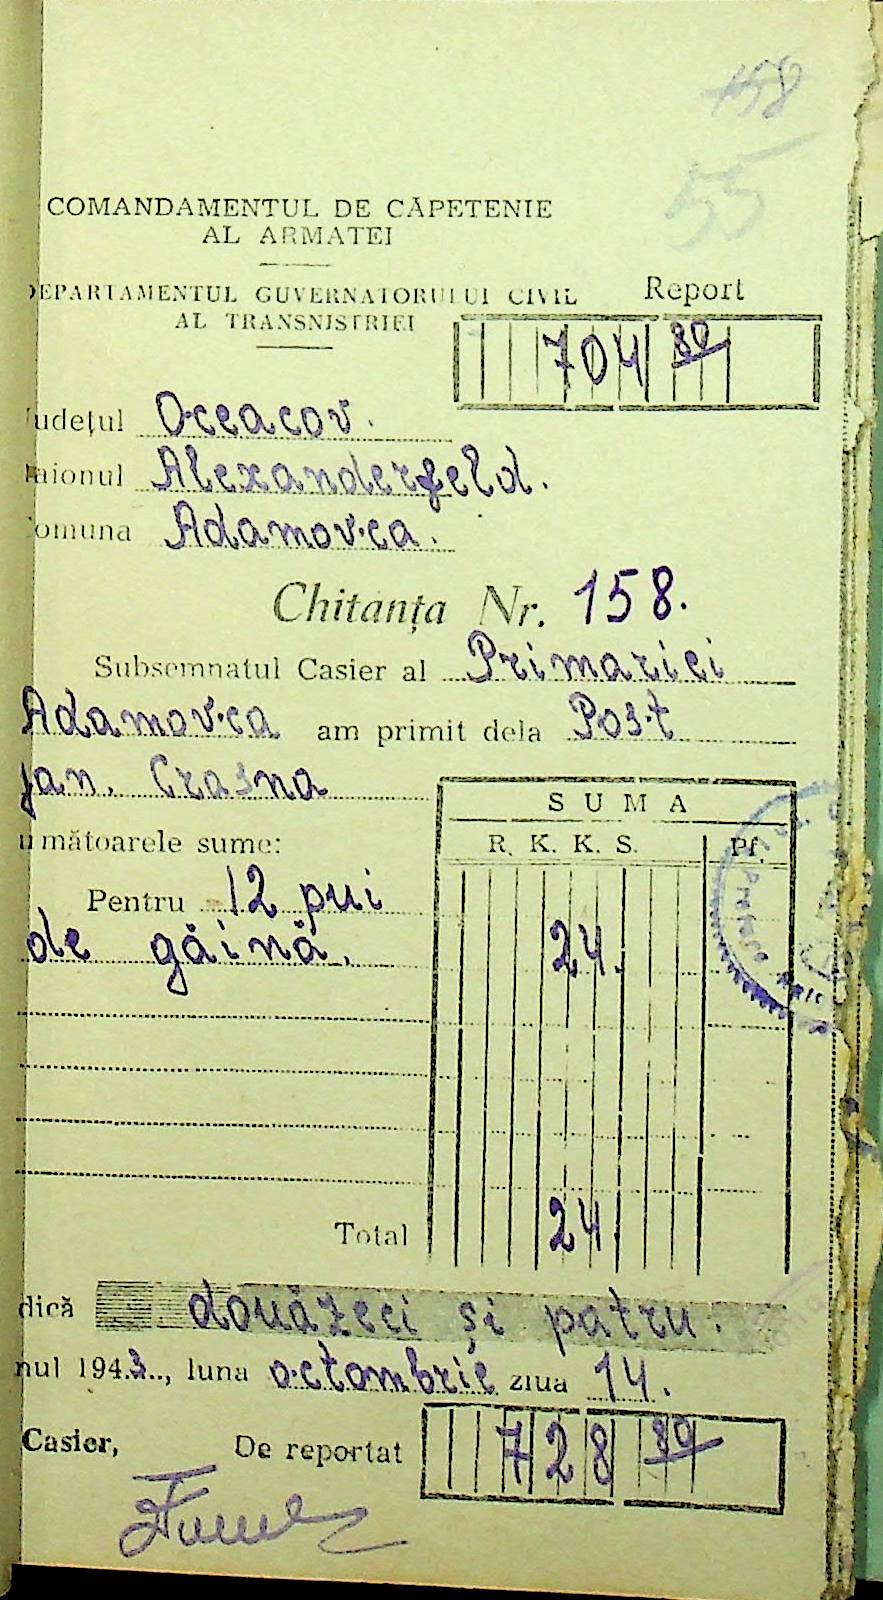 158
55
COMANDAMENTUL DE CĂPETENIE
AL ARMATEI
DEPARTAMENTUL GUVERNATORULUI CIVIL
AL TRANSNISTRIEI
Report
704 80
Județul Oceacov.
Raionul Alexanderfeld.
Comuna Adamovca.
Chitanța Nr. 158.
Subsemnatul Casier al Primariei
Adamovca am primit dela Post
jan. Crasna
următoarele sume:
SUMA
R. K. K. S. Pf.
Pentru 12 pui
de găină. 24.
Total 24.
dică douăzeci și patru.
nul 1943., luna octombrie ziua 14.
Casier, De reportat 728 80